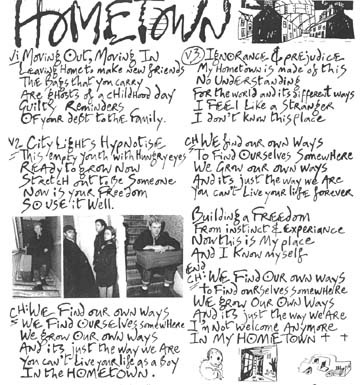 HOMETOWN
V1 Moving Out, Moving In
Leaving Home to make new friends
The bags that you carry
Are ghosts of a childhood day
Guilty Reminders
Of your debt to the family.
V2 City Lights Hypnotise
This empty youth with Hungry eyes
Ready to grow Now
Stretch out to be Someone
Now is your Freedom
So use it Well.
CH: We Find Our own ways
We Find Ourselves somewhere
We grow our Own ways
And it's just the way we Are
You can't Live your life as a boy
In the Hometown.
V3 Ignorance & prejudice
My Hometown is made of this
No Understanding
For the world and its different ways
I Feel Like a Stranger
I don't know this place
CH We find our own ways
To Find Ourselves Somewhere
We Grow our own ways
And it's just the way we Are
You can't Live your life forever
Building a Freedom
From instinct & Experiance
Now this is My place
And I Know myself
End
CH: We Find Our own ways
to Find ourselves somewhere
We grow Our Own ways
And it's just the way we Are
I'm Not welcome Anymore
In My HOMETOWN + +